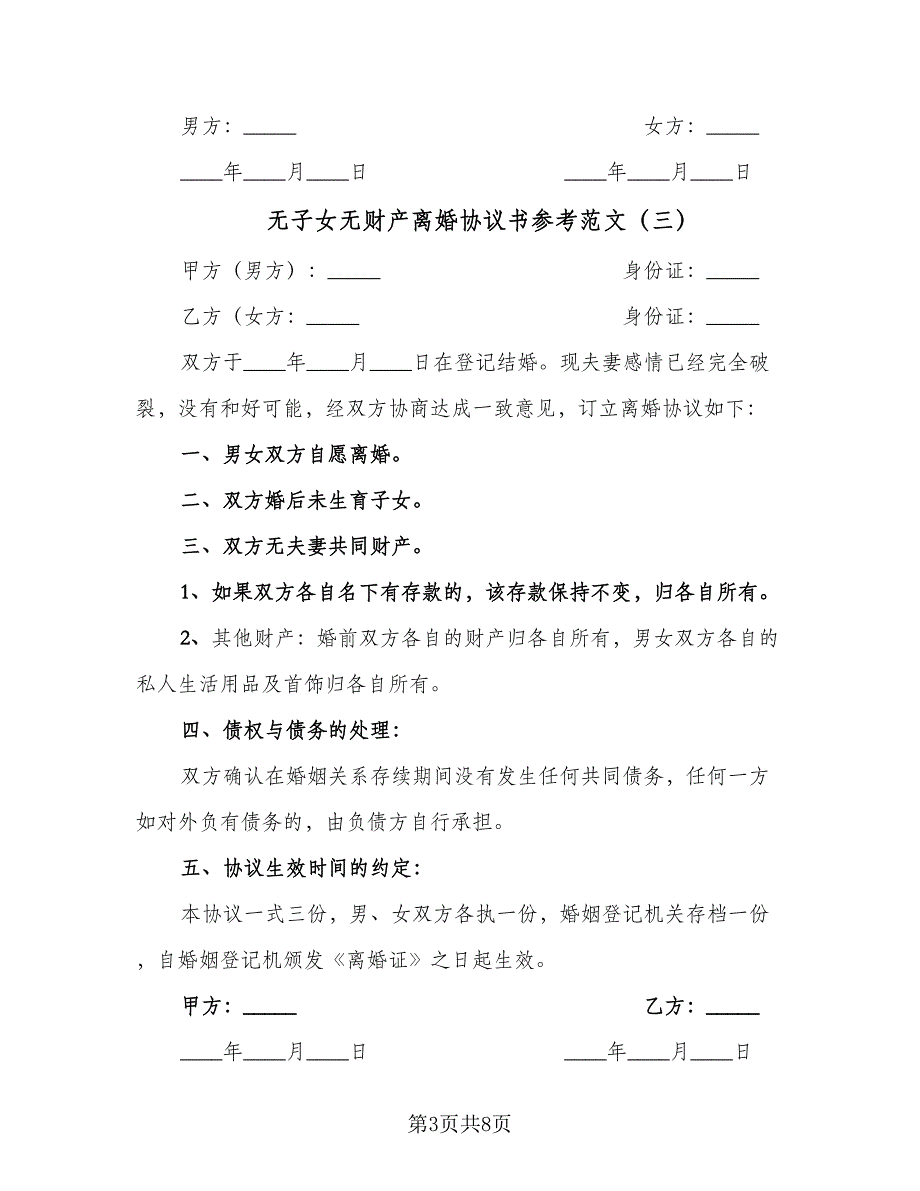 男方：_____ 女方：_____
____年____月____日 ____年____月____日
无子女无财产离婚协议书参考范文（三）
甲方（男方）：_____ 身份证：_____
乙方（女方：_____ 身份证：_____
双方于____年____月____日在登记结婚。现夫妻感情已经完全破
裂，没有和好可能，经双方协商达成一致意见，订立离婚协议如下：
一、男女双方自愿离婚。
二、双方婚后未生育子女。
三、双方无夫妻共同财产。
1、如果双方各自名下有存款的，该存款保持不变，归各自所有。
2、其他财产：婚前双方各自的财产归各自所有，男女双方各自的
私人生活用品及首饰归各自所有。
四、债权与债务的处理：
双方确认在婚姻关系存续期间没有发生任何共同债务，任何一方
如对外负有债务的，由负债方自行承担。
五、协议生效时间的约定：
本协议一式三份，男、女双方各执一份，婚姻登记机关存档一份
，自婚姻登记机颁发《离婚证》之日起生效。
甲方：_____ 乙方：_____
____年____月____日 ____年____月____日
第3页共8页